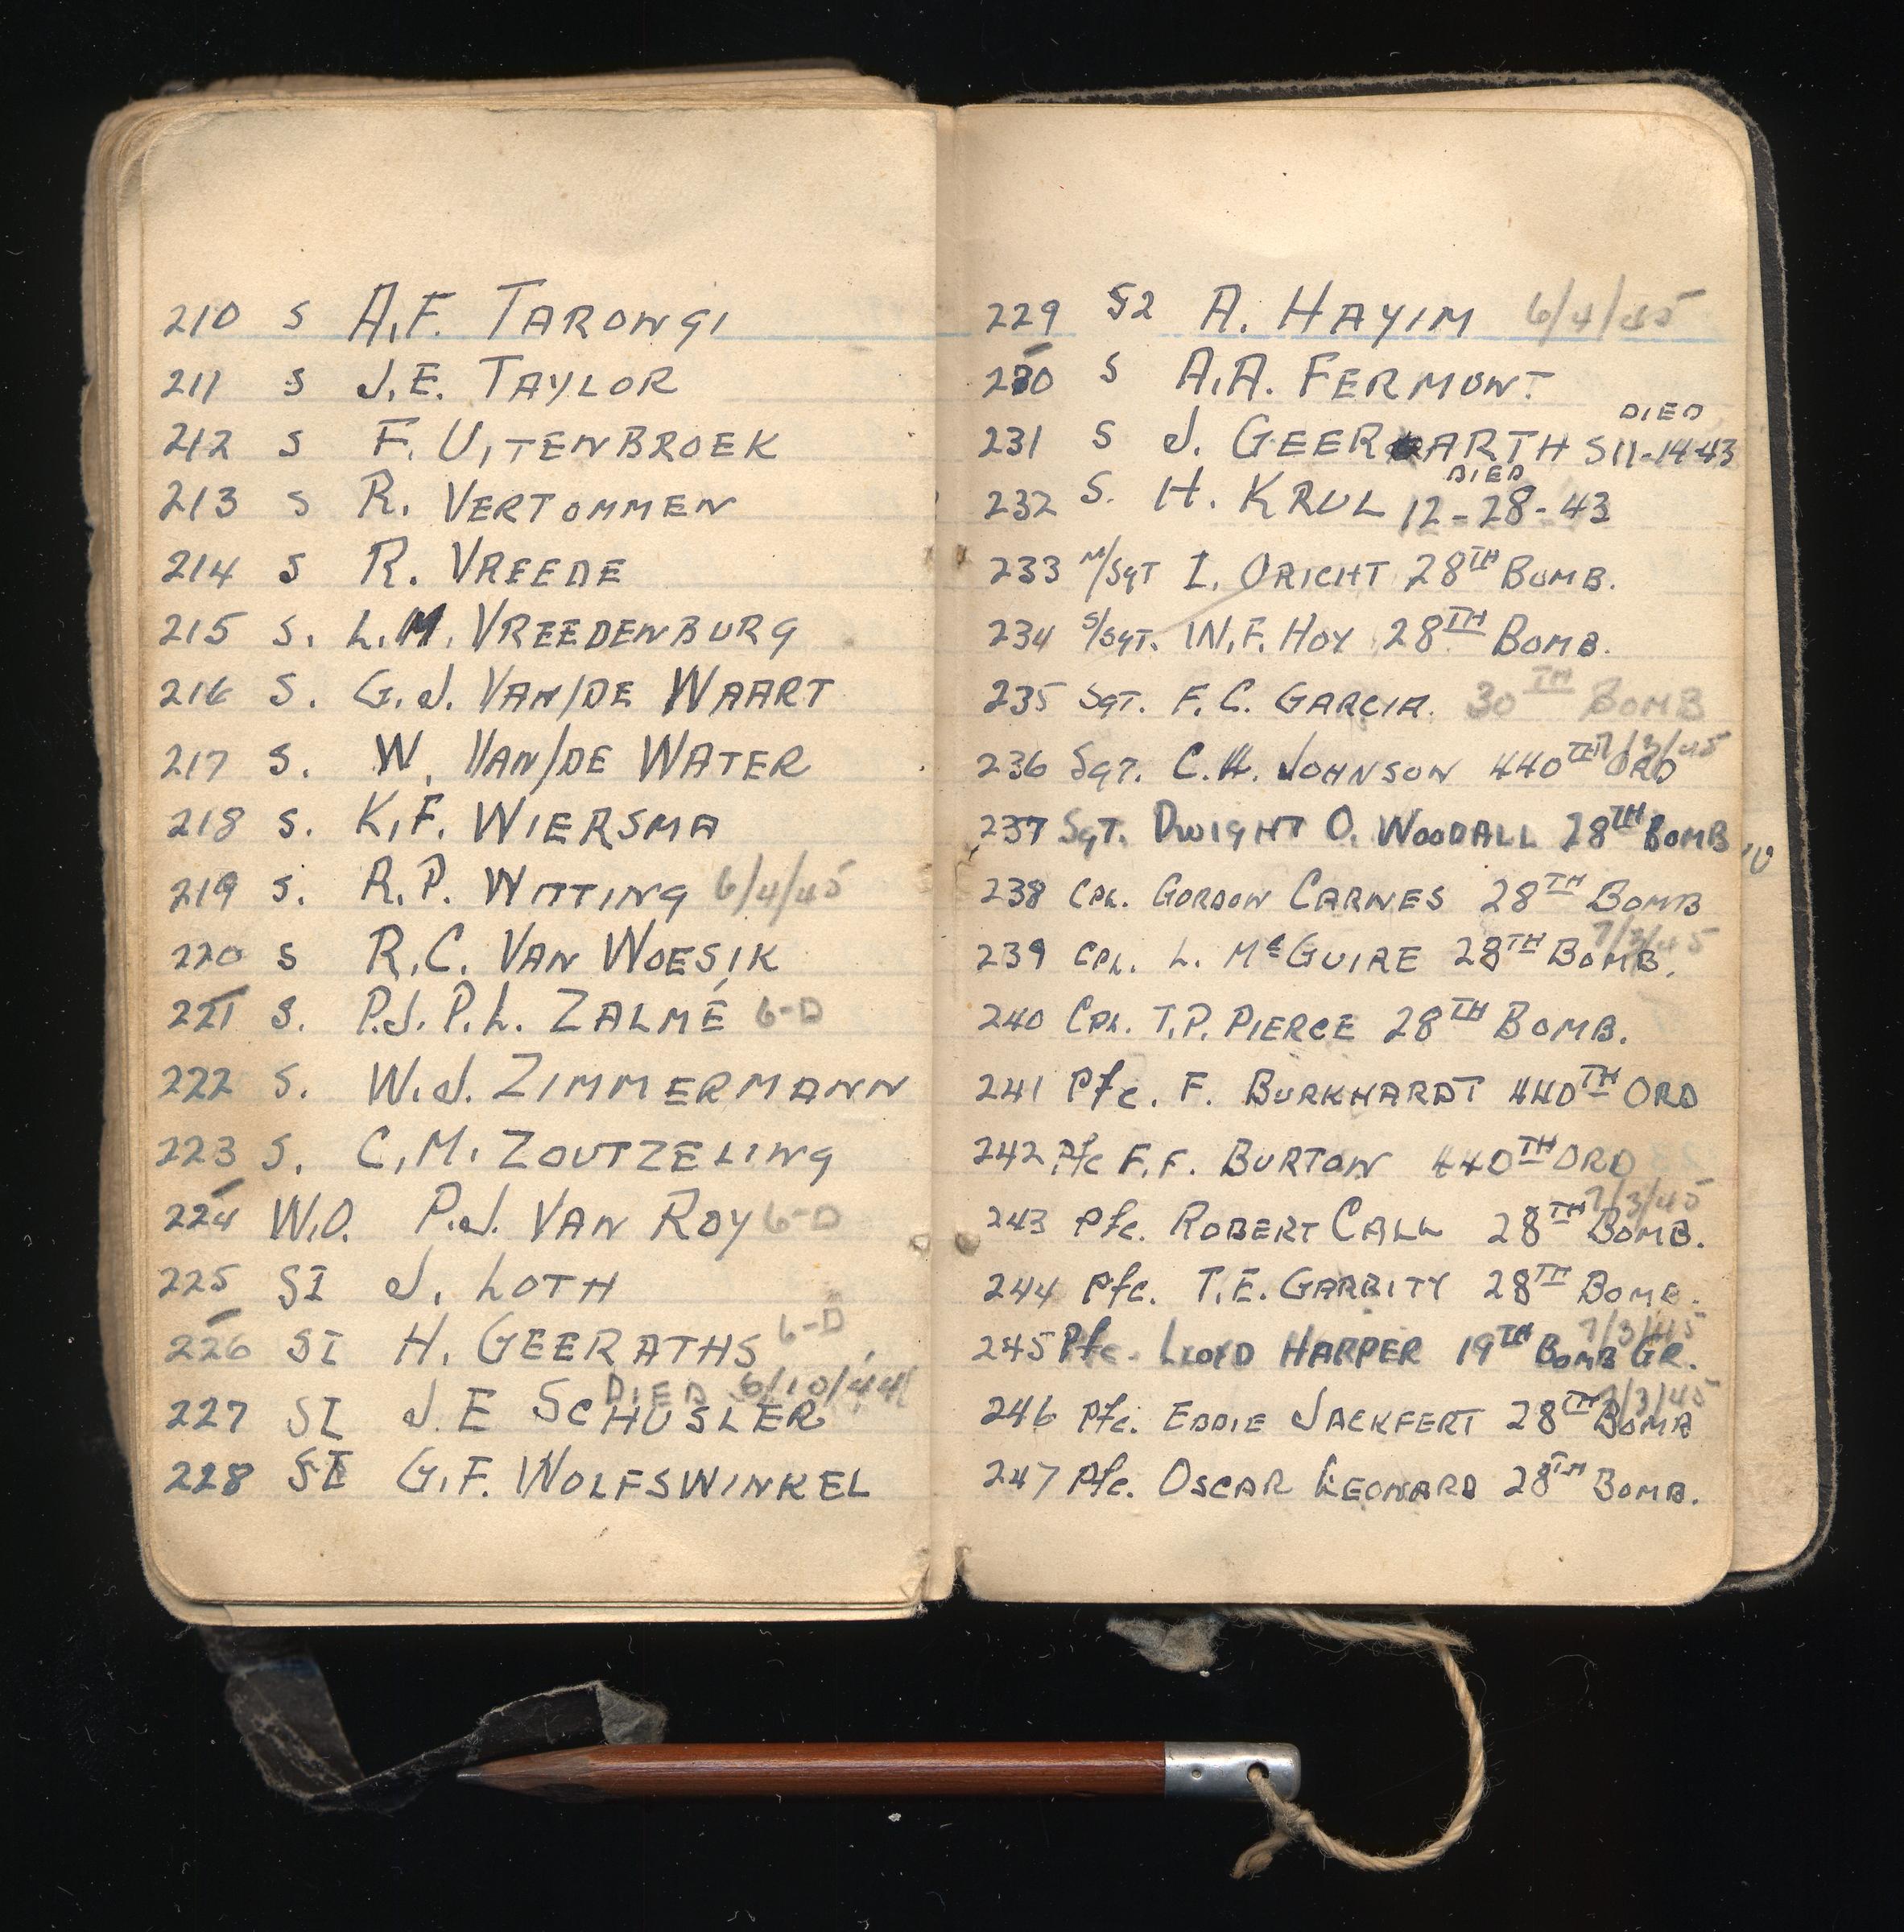 210 S A.F. TARONGI
211 S J.E. TAYLOR
212 S F. UITENBROEK
213 S R. VERTOMMEN
214 S R. VREEDE
215 S. L.M. VREEDENBURG
216 S. G.J. VAN/DE WAART
217 S. W. VAN/DE WATER
218 S. K.F. WIERSMA
219 S. R.P. WITTING 6/4/45
220 S R.C. VAN WOESIK
221 S. P.J.P.L. ZALMÉ 6-D
222 S. W.J. ZIMMERMANN
223 S. C.M. ZOUTZELING
224 W.O. P.J. VAN ROY 6-D
225 SI J. LOTH
226 SI H. GEERATHS 6-D
DIED 6/10/44
227 SI J.E SCHUSLER
228 SI G.F. WOLFSWINKEL
229 S2 A. HAYIM 6/4/45
230 S A.A. FERMONT
DIED
231 S J. GEERARTHS 11-14-43
DIED
232 S. H. KRUL 12-28-43
233 M/SGT I. ORICHT 28TH BOMB.
234 S/SGT. W.F. HOY 28TH BOMB.
235 SGT. F.C. GARCIA. 30TH BOMB
7/3/45
236 SGT. C.H. JOHNSON 440TH ORD
237 SGT. DWIGHT O. WOODALL 28TH BOMB
238 CPL. GORDON CARNES 28TH BOMB
7/3/45
239 CPL. L. McGUIRE 28TH BOMB.
240 CPL. T.P. PIERCE 28TH BOMB.
241 Pfc. F. BURKHARDT 440TH ORD
242 Pfc F.F. BURTON 440TH ORD
7/3/45
243 Pfc. ROBERT CALL 28TH BOMB.
244 Pfc. T.E. GARRITY 28TH BOMB.
7/3/45
245 Pfc. LLOYD HARPER 19TH BOMB GR.
7/3/45
246 Pfc. EDDIE JACKFERT 28TH BOMB
247 Pfc. OSCAR LEONARD 28TH BOMB.